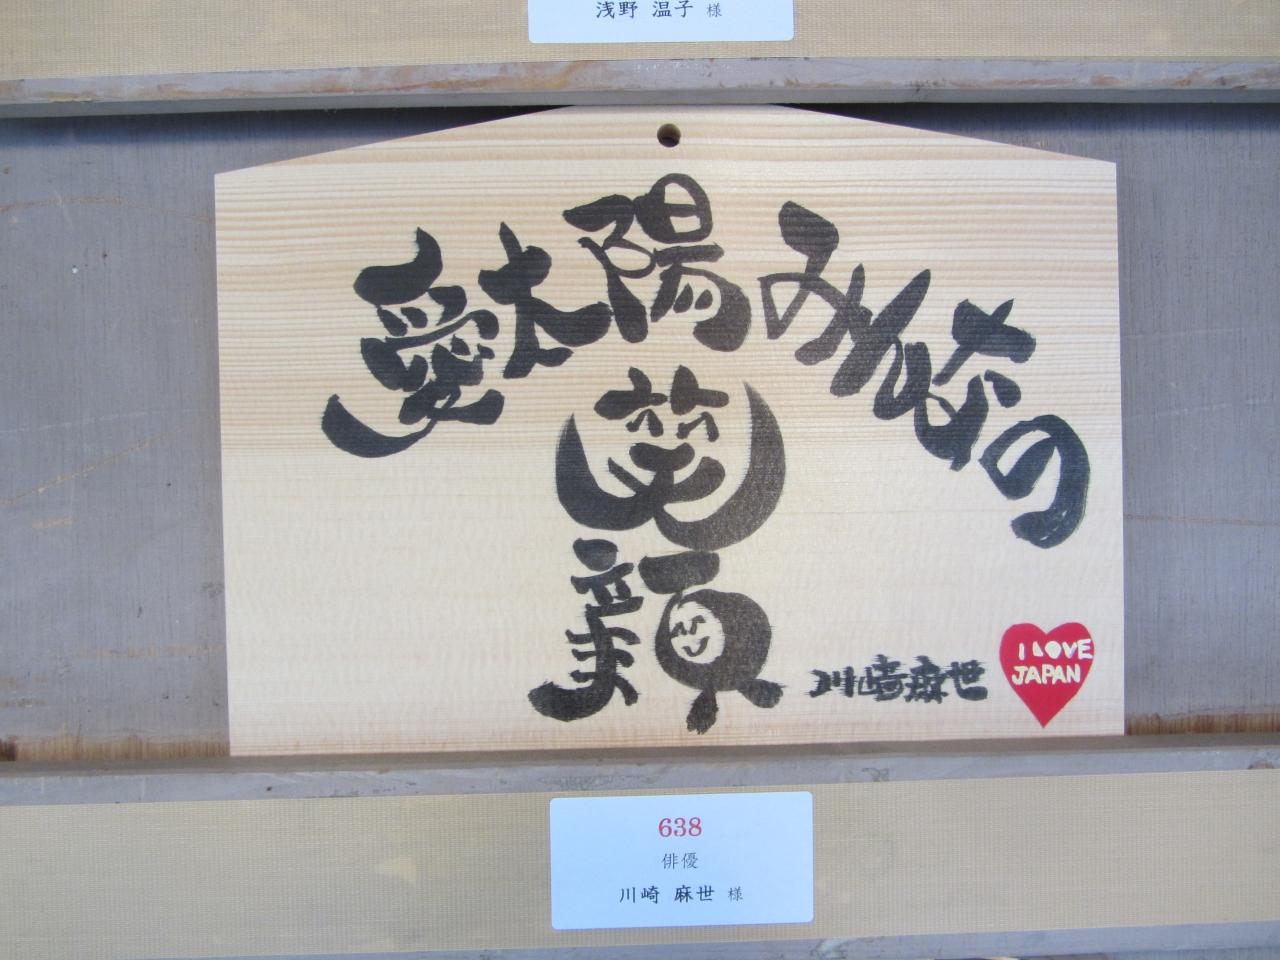 浅野 温子 様
愛太陽みんなの
笑顔
川崎麻世
I LOVE
JAPAN
638
俳優
川崎 麻世 様